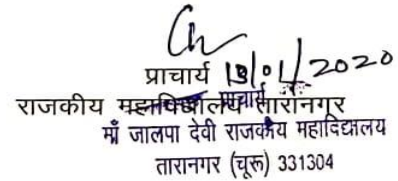 प्राचार्य 13/01/2020
राजकीय महाविद्यालय तारानगर
प्राचार्य
माँ जालपा देवी राजकीय महाविद्यालय
तारानगर (चूरू) 331304